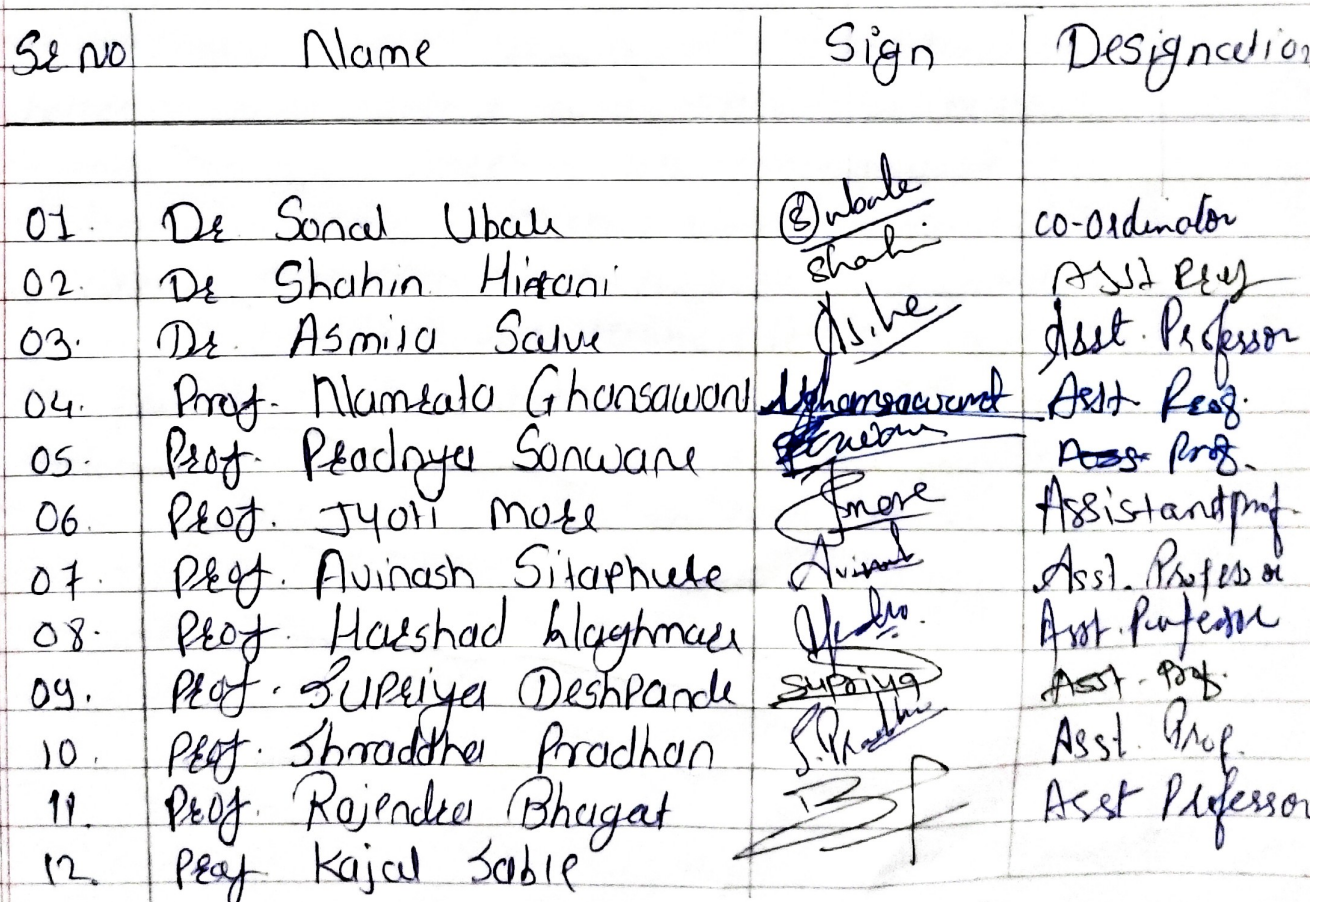 Sr No Name Sign Designation
01. Dr Sonal Ubale Subale Co-ordinator
02. Dr Shahin Hirani Shahi Asst Prof
03. Dr. Asmita Salve Asst. Professor
04. Prof. Namrata Ghansawant Nghansawant Asst Prof.
05. Prof. Pradnya Sonwane Prof.
06. Prof. Jyoti More Jmore Assistant prof.
07. Prof. Avinash Sitaphule Avinash Asst. Professor
08. Prof. Harshad Waghmare Asst. Professor
09. Prof. Supriya Deshpande Supriya Asst. Prof.
10. Prof. Shraddha Pradhan S. Pradhan Asst. Prof.
11. Prof. Rajendra Bhagat Asst Professor
12. Prof Kajal Sable